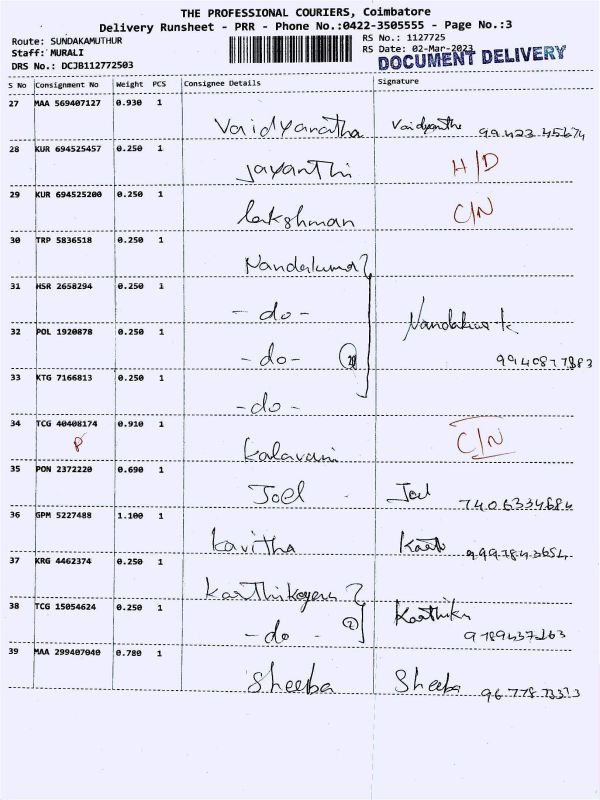 THE PROFESSIONAL COURIERS, Coimbatore
Delivery Runsheet - PRR - Phone No.:0422-3505555 - Page No.:3
Route: SUNDAKAMUTHUR
RS No.: 1127725
Staff: MURALI
RS Date: 02-Mar-2023
DRS No.: DCJB112772503
DOCUMENT DELIVERY
S No Consignment No Weight PCS Consignee Details Signature
27 MAA 569407127 0.930 1
Vaidyanatha Vaidyantha 99423 45674
28 KUR 694525457 0.250 1
Jayanthi H/D
29 KUR 694525200 0.250 1
lakshman C/N
30 TRP 5836518 0.250 1
Nandakuma
31 HSR 2658294 0.250 1
- do -
32 POL 1920878 0.250 1
- do -
33 KTG 7166813 0.250 1
- do -
34 TCG 40408174 0.910 1
P Kalavani C/N
35 PON 2372220 0.690 1
Joel Joel 7406334684
36 GPM 5227488 1.100 1
kavitha
37 KRG 4462374 0.250 1
38 TCG 15054624 0.250 1
- do - (2)
39 MAA 299407040 0.780 1
Sheeba Sheeba